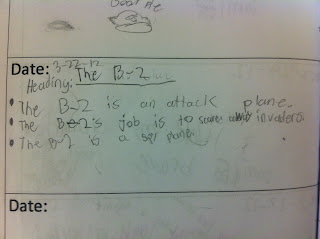 Date: 3-22-12
Heading: The B-2
• The B-2 is an attack plane.
• The B-2's job is to scare away invaders.
• The B-2 is a spy plane.
Date: